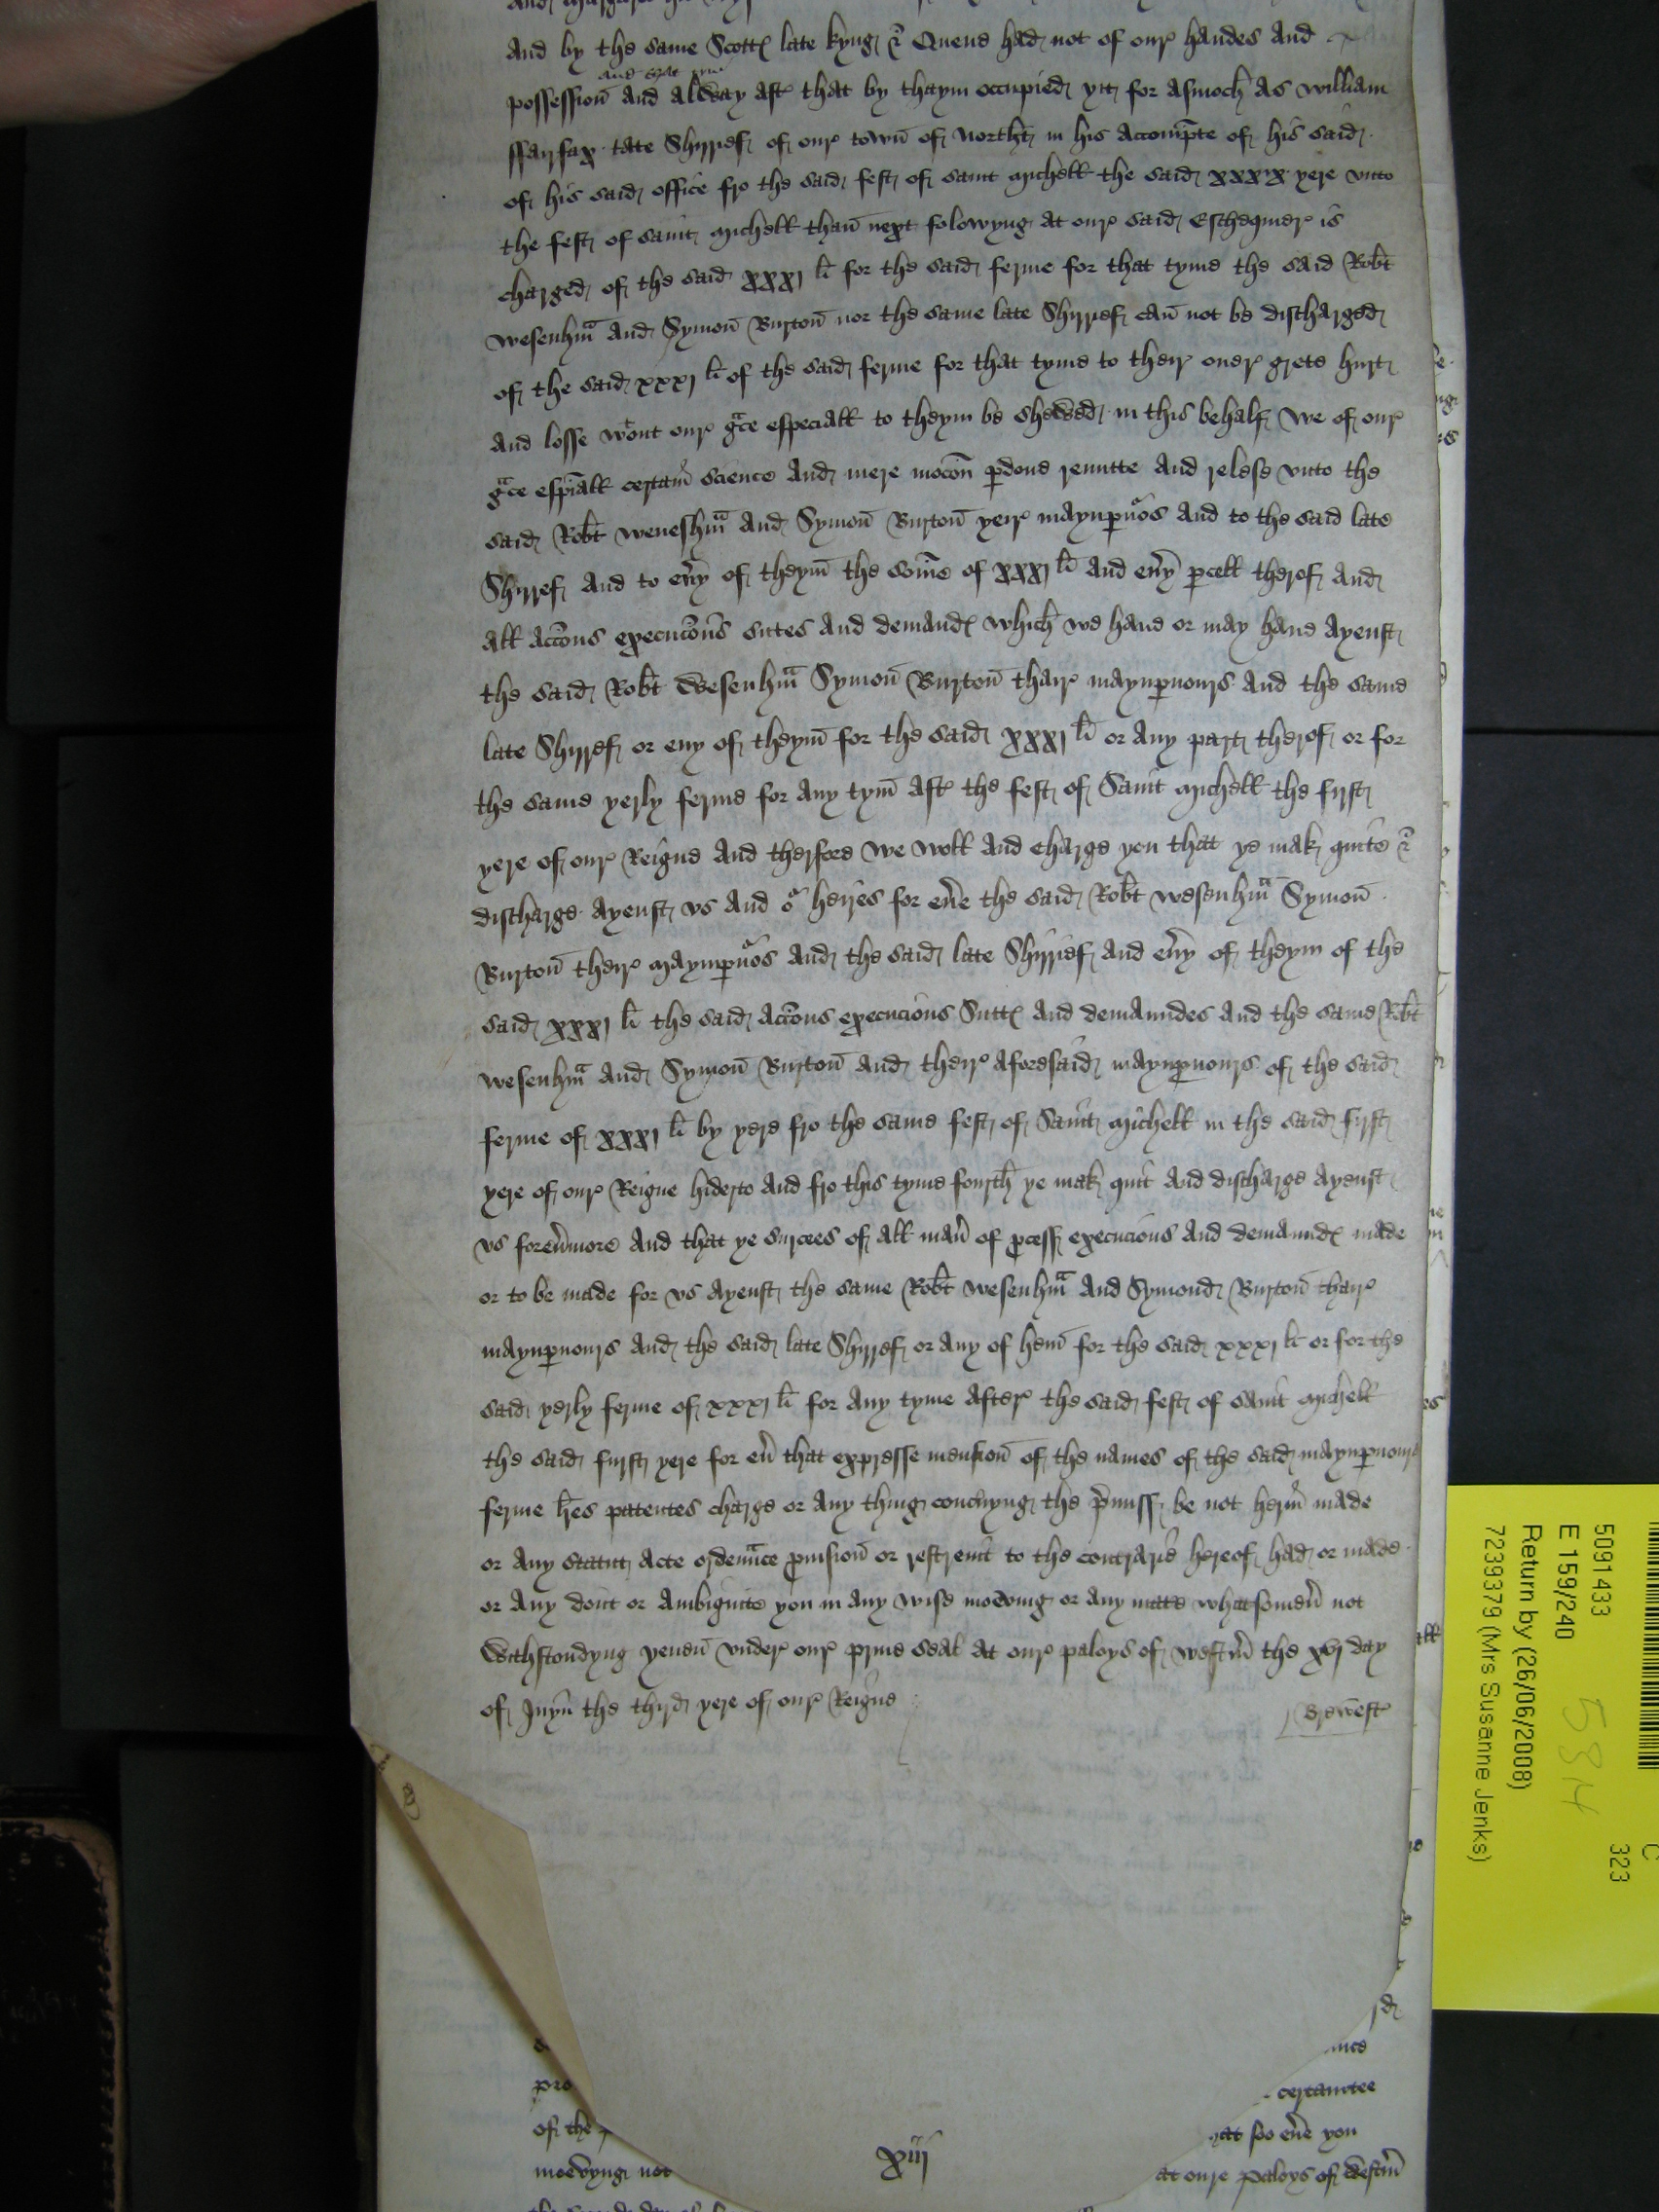 And by the same Scott late kyng & Quene had not of our handes And
and that tyme
possession And Alway aft that by thaym occupied yit for Asmoch As william
ffairfax late Shirref of our town of Northt in his Accompte of his said
of his said office fro the said fest of saint michell the said xxxix yere vnto
the fest of saint michell than next folowyng At our said Eschequier is
charged of the said xxxj li for the said ferme for that tyme the said Robt
wesenhm And Symon Burton nor the same late Shirref can not be discharged
of the said xxxj li of the said ferme for that tyme to their ouer grete hurt
And losse wtout our gce especiall to theym be shewed in this behalf We of our
gce espiall certain science And mere mocon pdone remitte And relese vnto the
said Robt weneshm And Symon Burton yeir maynpnos And to the said late
Shirref And to eny of theym the some of xxxj li And eny pcell therof And
All Accons execucons sutes And demand which we haue or may haue Ayenst
the said Robt Wesenhm Symon Burton thair maynpnours And the same
late Shirref or eny of theym for the said xxxj li or Any part therof or for
the same yerly ferme for Any tym Aft the fest of Saint michell the first
yere of our Reigne And therfore We woll And charge you that ye mak quite &
discharge Ayenst vs And or heires for eue the said Robt wesenhm Symon
Burton their maynpnos And the said late Shirref And eny of theym of the
said xxxj li the said Accons execucions Sutt And demaundes And the same Robt
wesenhm And Symon Burton And their Aforesaid maynpnours of the said
ferme of xxxj li by yere fro the same fest of Saint michell in the said first
yere of our Reigne hiderto And fro this tyme fourth ye mak quit And discharge Ayenst
vs foreumore And that ye surcees of All man of pcess execucions And demaund made
or to be made for vs Ayenst the same Robt wesenhm And Symond Burton thair
maynpnours And the said late Shirref or Any of hem for the said xxxj li or for the
said yerly ferme of xxxj li for Any tyme After the said fest of saint michell
the said furst yere for eu that expresse mension of the names of the said maynpnours
ferme lres patentes charge or Any thing conchyng the pmiss be not herin made
or Any statut Acte ordennce puision or restreint to the contrarie hereof had or made
or Any dout or Ambiguite you in Any wise moeving or Any mate whatsomeu not
Withstondyng yeuen vnder our priue seal At our paloys of westm the xvj day
of Juyn the third yere of our Reigne
Brewest
pro
certaintee
of the
hat soo eue you
moevyng not
xiij
at oure Paloys of Westm
5091433
C
323
E 159/240
5814
Return by (26/06/2008)
7239379 (Mrs Susanne Jenks)